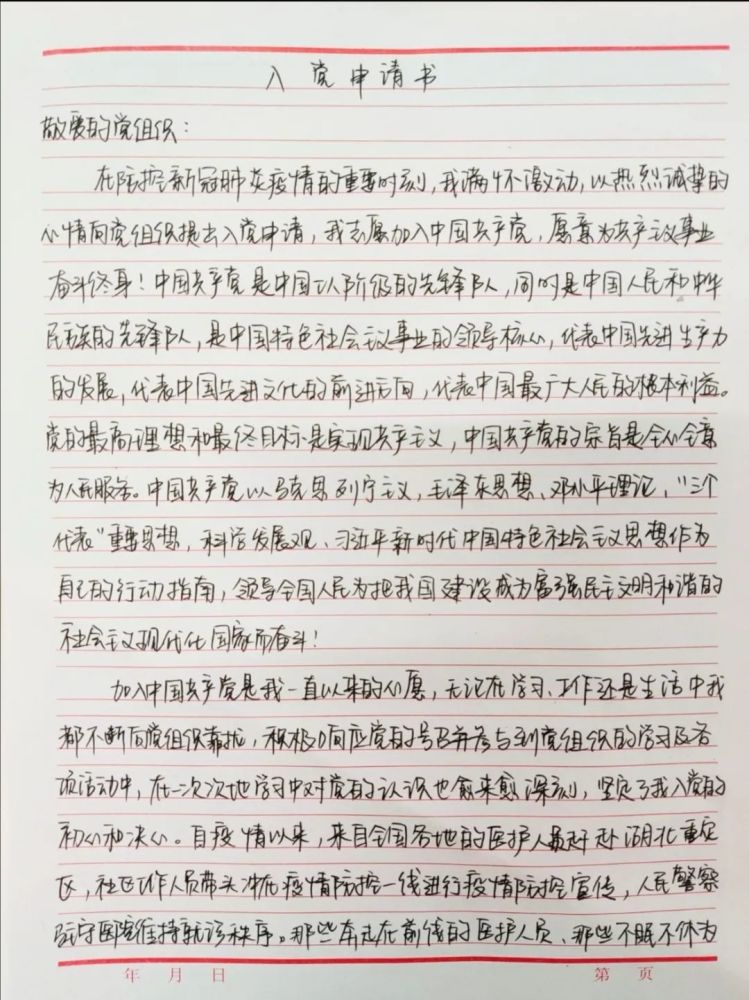 入党申请书
敬爱的党组织：
在防控新冠肺炎疫情的重要时刻，我满怀激动，以热烈诚挚的
心情向党组织提出入党申请，我志愿加入中国共产党，愿意为共产主义事业
奋斗终身！中国共产党是中国工人阶级的先锋队，同时是中国人民和中华
民族的先锋队，是中国特色社会主义事业的领导核心，代表中国先进生产力
的发展，代表中国先进文化的前进方向，代表中国最广大人民的根本利益。
党的最高理想和最终目标是实现共产主义，中国共产党的宗旨是全心全意
为人民服务。中国共产党以马克思列宁主义，毛泽东思想、邓小平理论，“三个
代表”重要思想，科学发展观、习近平新时代中国特色社会主义思想作为
自己的行动指南，领导全国人民为把我国建设成为富强民主文明和谐的
社会主义现代化国家而奋斗！
加入中国共产党是我一直以来的心愿，无论在学习、工作还是生活中我
都不断向党组织靠拢，积极响应党的号召并参与到党组织的学习及各
项活动中，在一次次地学习中对党的认识也愈来愈深刻，坚定了我入党的
初心和决心。自疫情以来，来自全国各地的医护人员赶赴湖北重灾
区，社区工作人员带头冲在疫情防控一线进行疫情防控宣传，人民警察
驻守医院维持就诊秩序。那些奔走在前线的医护人员、那些不眠不休为
年 月 日
第 页